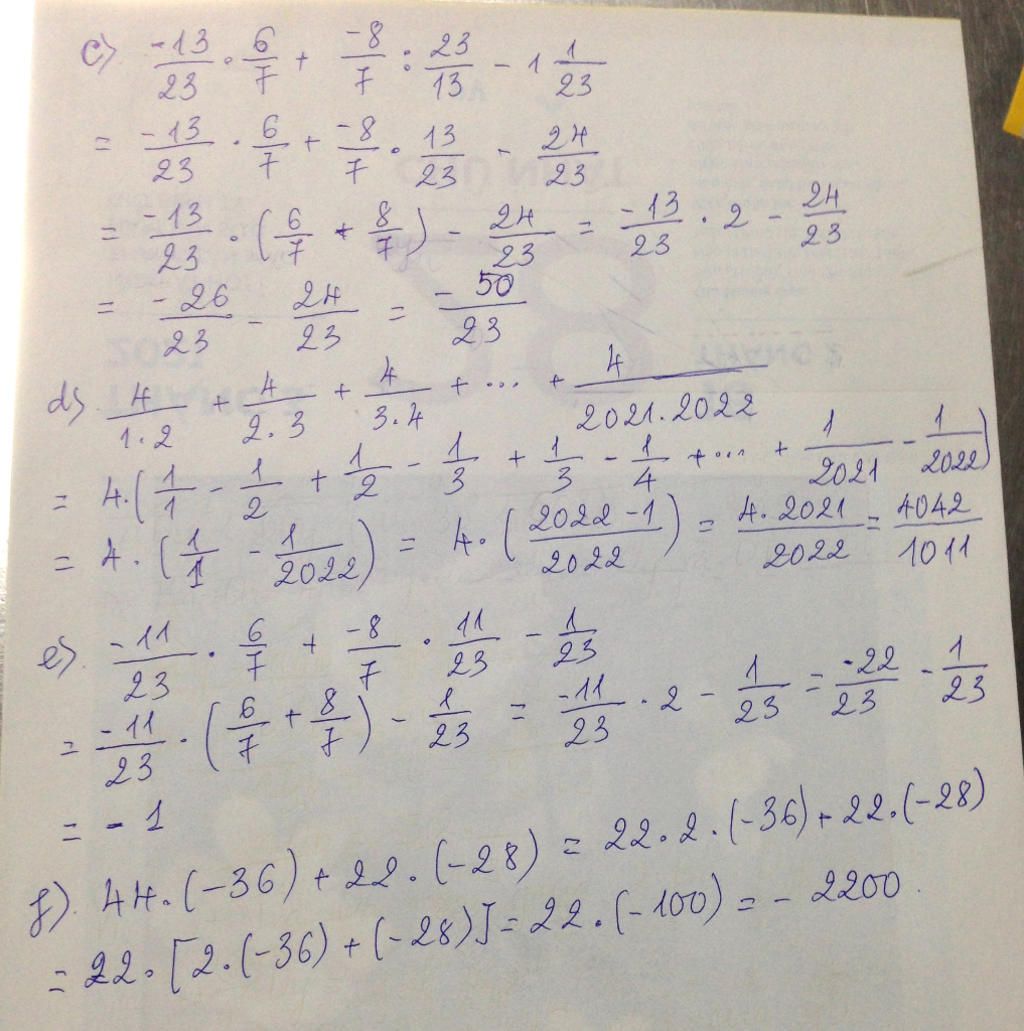 c) -13/23 · 6/7 + -8/7 : 23/13 - 1 1/23
= -13/23 · 6/7 + -8/7 · 13/23 - 24/23
= -13/23 · (6/7 + 8/7) - 24/23 = -13/23 · 2 - 24/23
= -26/23 - 24/23 = -50/23
d) 4/1.2 + 4/2.3 + 4/3.4 + ... + 4/2021.2022
= 4·(1/1 - 1/2 + 1/2 - 1/3 + 1/3 - 1/4 + ... + 1/2021 - 1/2022)
= 4·(1/1 - 1/2022) = 4·(2022-1/2022) = 4.2021/2022 = 4042/1011
e) -11/23 · 6/7 + -8/7 · 11/23 - 1/23
= -11/23 · (6/7 + 8/7) - 1/23 = -11/23 · 2 - 1/23 = -22/23 - 1/23
= -1
f) 44·(-36) + 22·(-28) = 22·2·(-36) + 22·(-28)
= 22·[2·(-36) + (-28)] = 22·(-100) = -2200.